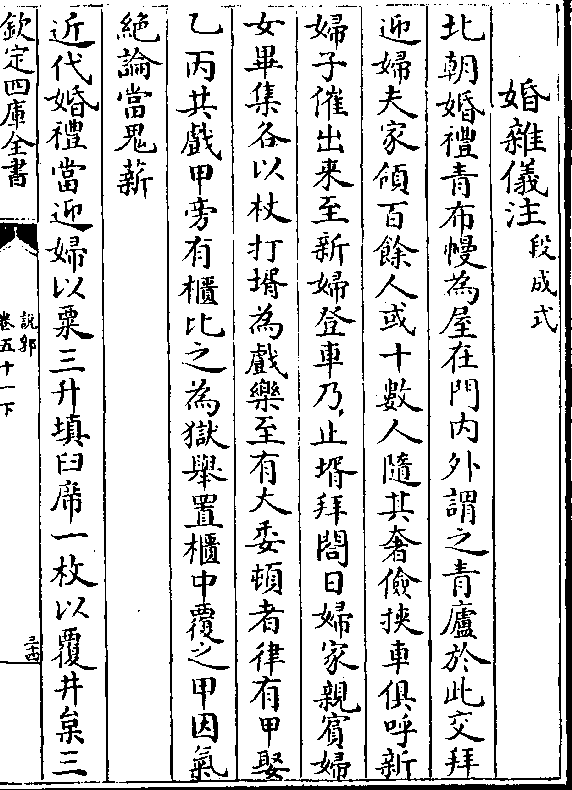 婚雜儀注
段成式
北朝婚禮青布幔為屋在門内外謂之青廬於此交拜
迎婦夫家領百餘人或十數人隨其奢儉挾車俱呼新
婦子催出来至新婦登車乃止壻拜閤日婦家親賓婦
女畢集各以杖打壻為戲樂至有大委頓者律有甲娶
乙丙共戲甲旁有櫃比之為獄舉置櫃中覆之甲因氣
絶論當鬼薪
近代婚禮當迎婦以粟三升填臼席一枚以覆井枲三
欽定四庫全書
說郛
卷五十一下